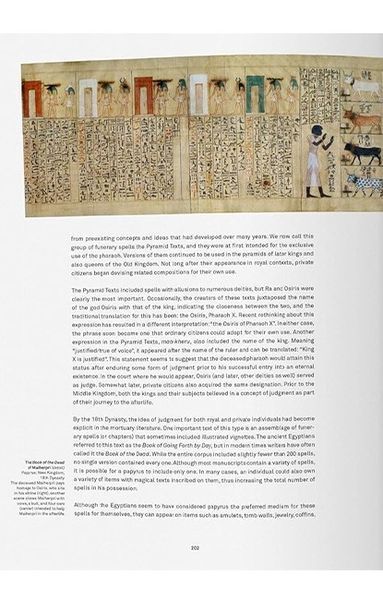 from preexisting concepts and ideas that had developed over many years. We now call this
group of funerary spells the Pyramid Texts, and they were at first intended for the exclusive
use of the pharaoh. Versions of them continued to be used in the pyramids of later kings and
also queens of the Old Kingdom. Not long after their appearance in royal contexts, private
citizens began devising related compositions for their own use.
The Pyramid Texts included spells with allusions to numerous deities, but Ra and Osiris were
clearly the most important. Occasionally, the creators of these texts juxtaposed the name
of the god Osiris with that of the king, indicating the closeness between the two, and the
traditional translation for this has been: the Osiris, Pharaoh X. Recent rethinking about this
expression has resulted in a different interpretation: "the Osiris of Pharaoh X". In either case,
the phrase soon became one that ordinary citizens could adopt for their own use. Another
expression in the Pyramid Texts, maa-kheru, also included the name of the king. Meaning
"justified/true of voice", it appeared after the name of the ruler and can be translated: "King
X is justified". This statement seems to suggest that the deceased pharaoh would attain this
status after enduring some form of judgment prior to his successful entry into an eternal
existence. In the court where he would appear, Osiris (and later, other deities as well) served
as judge. Somewhat later, private citizens also acquired the same designation. Prior to the
Middle Kingdom, both the kings and their subjects believed in a concept of judgment as part
of their journey to the afterlife.
By the 18th Dynasty, the ideas of judgment for both royal and private individuals had become
explicit in the mortuary literature. One important text of this type is an assemblage of funer-
ary spells (or chapters) that sometimes included illustrated vignettes. The ancient Egyptians
referred to this text as the Book of Going Forth by Day, but in modern times writers have often
called it the Book of the Dead. While the entire corpus included slightly fewer than 200 spells,
no single version contained every one. Although most manuscripts contain a variety of spells,
it is possible for a papyrus to include only one. In many cases, an individual could also own
a variety of items with magical texts inscribed on them, thus increasing the total number of
spells in his possession.
Although the Egyptians seem to have considered papyrus the preferred medium for these
spells for themselves, they can appear on items such as amulets, tomb walls, jewelry, coffins,
The Book of the Dead
of Maiherpri (detail)
Papyrus, New Kingdom,
18th Dynasty
The deceased Maiherpri pays
homage to Osiris, who sits
in his shrine (right); another
scene shows Maiherpri with
cows, a bull, and four oars
(center) intended to help
Maiherpri in the afterlife.
202